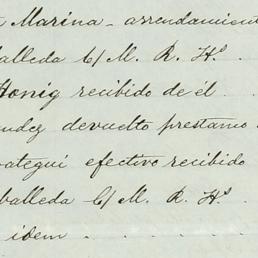 Marina - arrendamient
balleda C/ M. R. Hs. . .
Honig recibido de él . . .
ndez devuelto prestamo
ategui efectivo recibido
balleda C/ M. R. Hs. . .
idem . . . . .